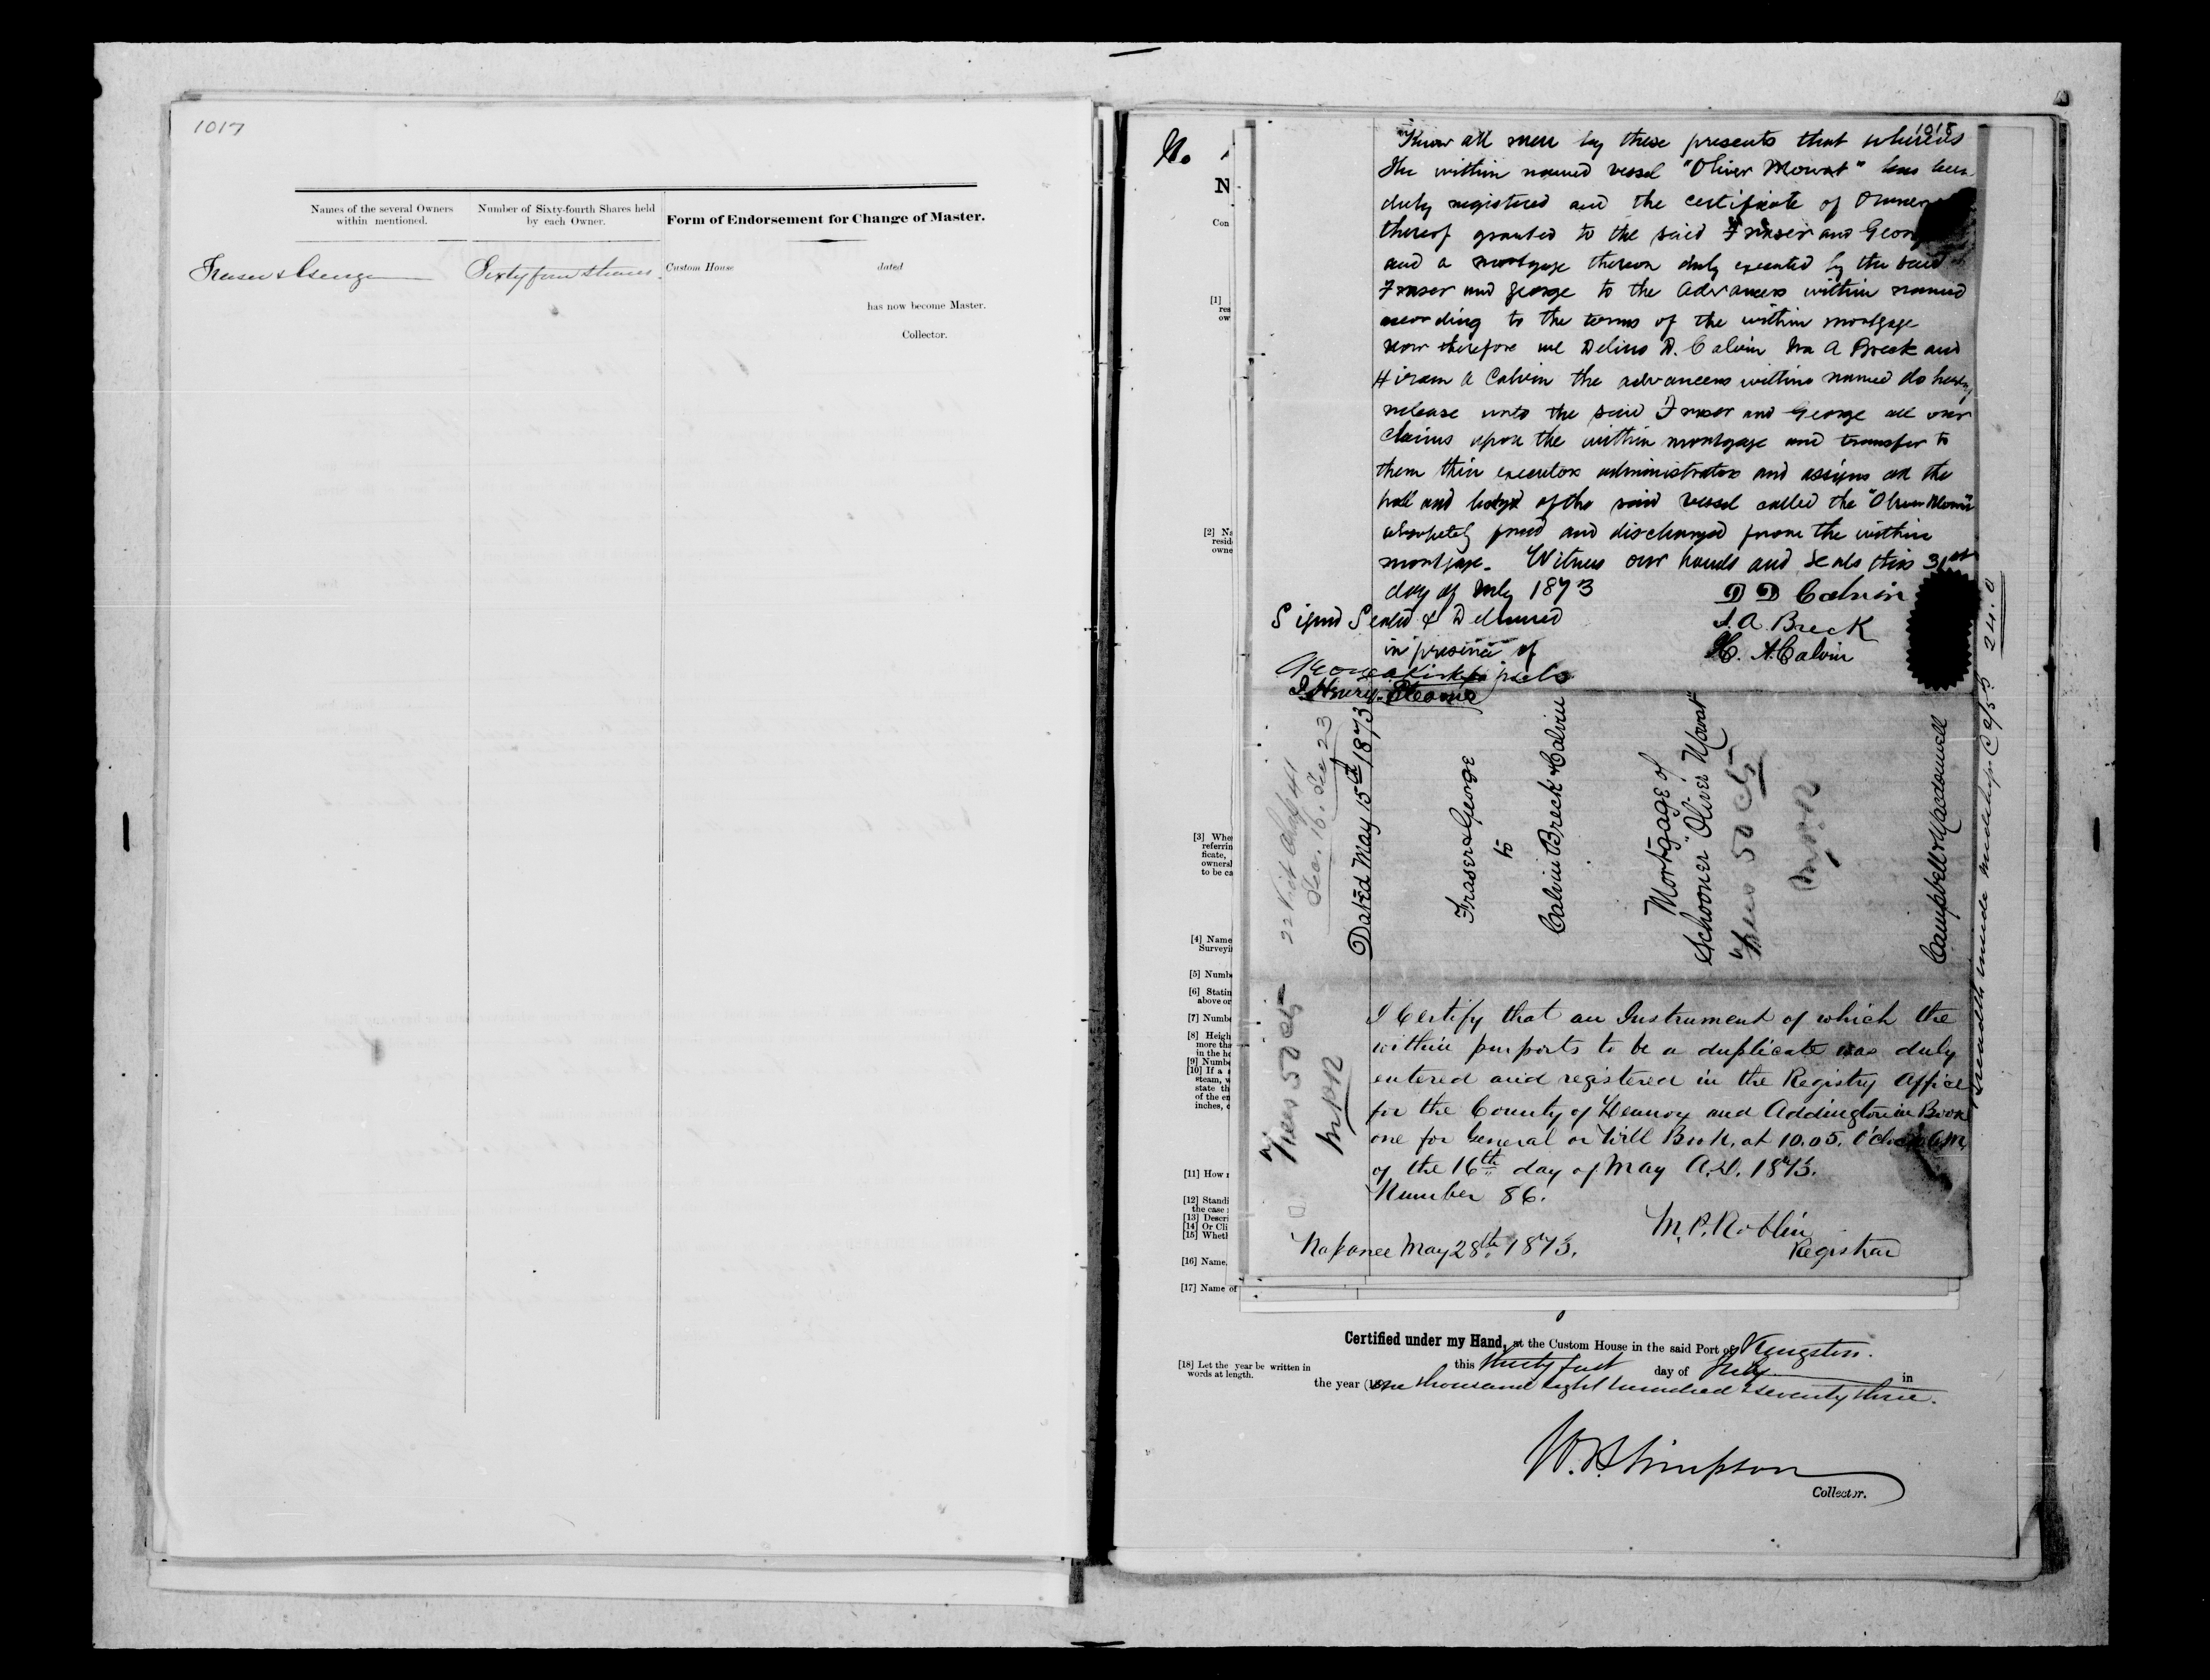 1017
Names of the several Owners within mentioned.
Number of Sixty-fourth Shares held by each Owner.
Form of Endorsement for Change of Master.
Fraser & George
Sixty four shares.
Custom House
dated
has now become Master.
Collector.
1018
No
N
Con
[1]
res
ow
[2] Na
resid
owne
[3] Whe
referrin
ficate,
ownersh
to be ca
[4] Name
Surveyi
[5] Numbe
[6] Statin
above or
[7] Numbe
[8] Heigh
more tha
in the ho
[9] Numbe
[10] If a
steam, w
state th
of the en
inches, o
[11] How
[12] Standi
the case
[13] Descri
[14] Or Cli
[15] Wheth
[16] Name,
[17] Name of
Know all men by these presents that whereas
the within named vessel "Oliver Mowat" has been
duly registered and the certificate of Owner
thereof granted to the said Fraser and Geor
and a mortgage thereon duly executed by the said
Fraser and George to the advancers within named
according to the terms of the within mortgage
now therefore we Delino D. Calvin Ira A Breck and
Hiram A Calvin the advancers within named do hereby
release unto the said Fraser and George all our
claims upon the within mortgage and transfer to
them their executors administrators and assigns all the
hull and of the said vessel called the "Oliver Mowat"
absolutely freed and discharged from the within
mortgage. Witness our hands and seals this 31st
day of July 1873
D D Calvin
Signed Sealed & Delivered
I. A. Breck
in presence of
H. A. Calvin
22 Vict Chap 41
Sec. 16. Sec 23
Dated May 15th 1873
Fraser & George
to
Calvin Breck & Calvin
Mortgage of
Schooner "Oliver Mowat"
Fees 50 cts
MPR
Campbell & Macdonell
24.0
Fees 50 cts
MPR
I Certify that an Instrument of which the
within purports to be a duplicate was duly
entered and registered in the Registry Office
for the County of Lennox and Addington in Book
one for General or Will Book, at 10.05. O'clock A.M.
of the 16th day of May A.D. 1873.
Number 86.
M. P. Roblin
Registrar
Napanee May 28th 1873.
Certified under my Hand, at the Custom House in the said Port of Kingston.
[18] Let the year be written in
words at length.
this thirty first day of July in
the year (18) one thousand eight hundred & seventy three.
W. B. Simpson
Collector.